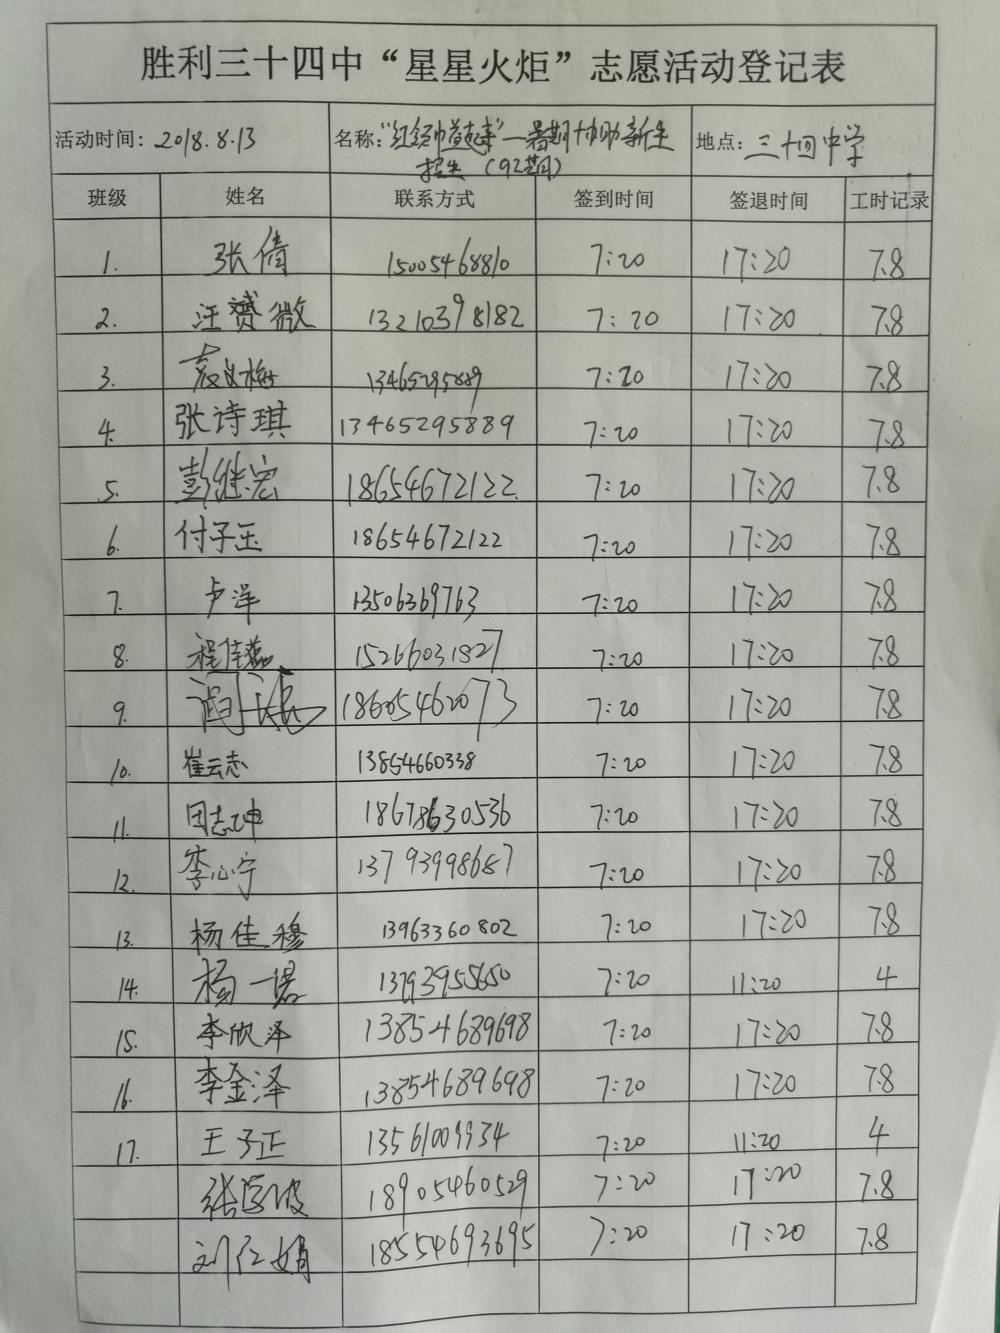 胜利三十四中“星星火炬”志愿活动登记表
活动时间: 2018.8.13 名称: “红领巾益起来”—暑期协助新生 地点: 三十四中学
招生(92期)
班级 姓名 联系方式 签到时间 签退时间 工时记录
1. 张倩 15005468810 7:20 17:20 7.8
2. 汪赟微 13210398182 7:20 17:20 7.8
3. 袁义梅 13465295889 7:20 17:20 7.8
4. 张诗琪 13465295889 7:20 17:20 7.8
5. 彭继宏 18654672122 7:20 17:20 7.8
6. 付子玉 18654672122 7:20 17:20 7.8
7. 卢洋 13506369763 7:20 17:20 7.8
8. 程佳蕊 15266031827 7:20 17:20 7.8
9. 18605462073 7:20 17:20 7.8
10. 崔云志 13854660338 7:20 17:20 7.8
11. 田志坤 18678630536 7:20 17:20 7.8
12. 李心宁 13793998687 7:20 17:20 7.8
13. 杨佳穆 13963360802 7:20 17:20 7.8
14. 杨一珺 13793955650 7:20 11:20 4
15. 李欣泽 13854689698 7:20 17:20 7.8
16. 李金泽 13854689698 7:20 17:20 7.8
17. 王子正 13561009934 7:20 11:20 4
张厚波 18905460529 7:20 17:20 7.8
刘红娟 18554693695 7:20 17:20 7.8